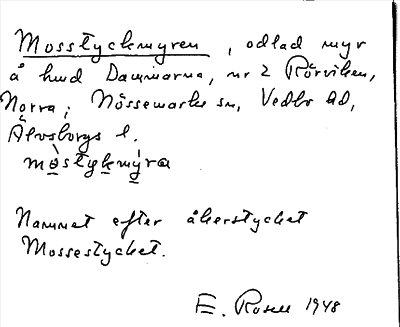 Mosstyckmyren, odlad myr
å hmd Dammarna, nr 2 Rörviken,
Norra; Nössemarks sn, Vedbo hd,
Älvsborgs l.
mòstykmýra
Namnet efter åkerstycket
Mossestycket.
E. Rosell 1948